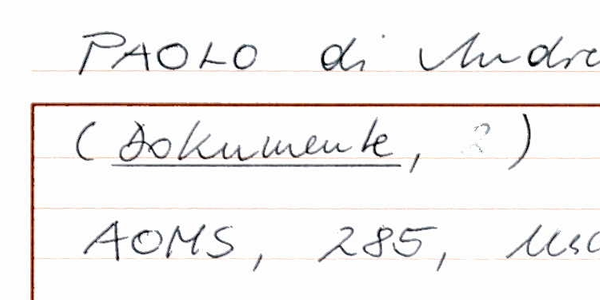 PAOLO di Andre
(Dokumente, 2)
AOMS, 285, Usc